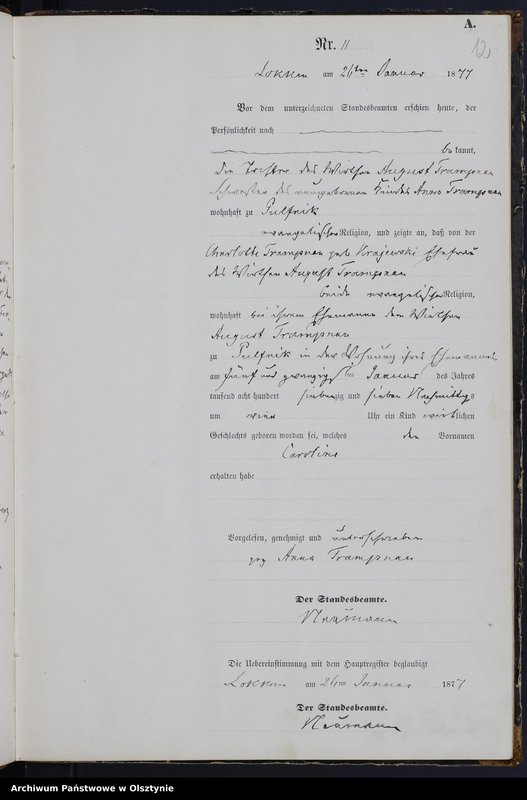 A.
12
Nr. 11
Lokken am 26ten Januar 1877
Vor dem unterzeichneten Standesbeamten erschien heute, der
Persönlichkeit nach
bekannt,
die Tochter des Wirthen August Trampnau
Schwester des neugeborenen Kindes Anna Trampnau
wohnhaft zu Pulfnik
evangelischer Religion, und zeigte an, daß von der
Charlotte Trampnau geb Krajewski Ehefrau
des Wirthen August Trampnau
beide evangelischer Religion,
wohnhaft bei ihrem Ehemanne dem Wirthen
August Trampnau
zu Pulfnik in der Wohnung ihres Ehemannes
am fünf und zwanzigsten Januar des Jahres
tausend acht hundert siebenzig und sieben Nachmittags
um vier Uhr ein Kind weiblichen
Geschlechts geboren worden sei, welches den Vornamen
Caroline
erhalten habe
Vorgelesen, genehmigt und unterschrieben
gez Anna Trampnau
Der Standesbeamte.
Neumann
Die Uebereinstimmung mit dem Hauptregister beglaubigt
Lokken am 26ten Januar 1877
Der Standesbeamte.
Neumann
Archiwum Państwowe w Olsztynie